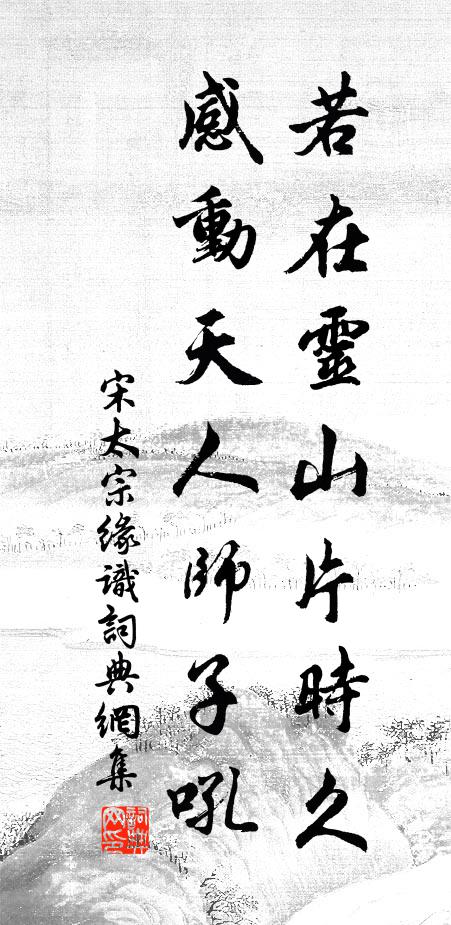 若在靈山片時久
感動天人師子吼
宋太宗緣識詞典網集